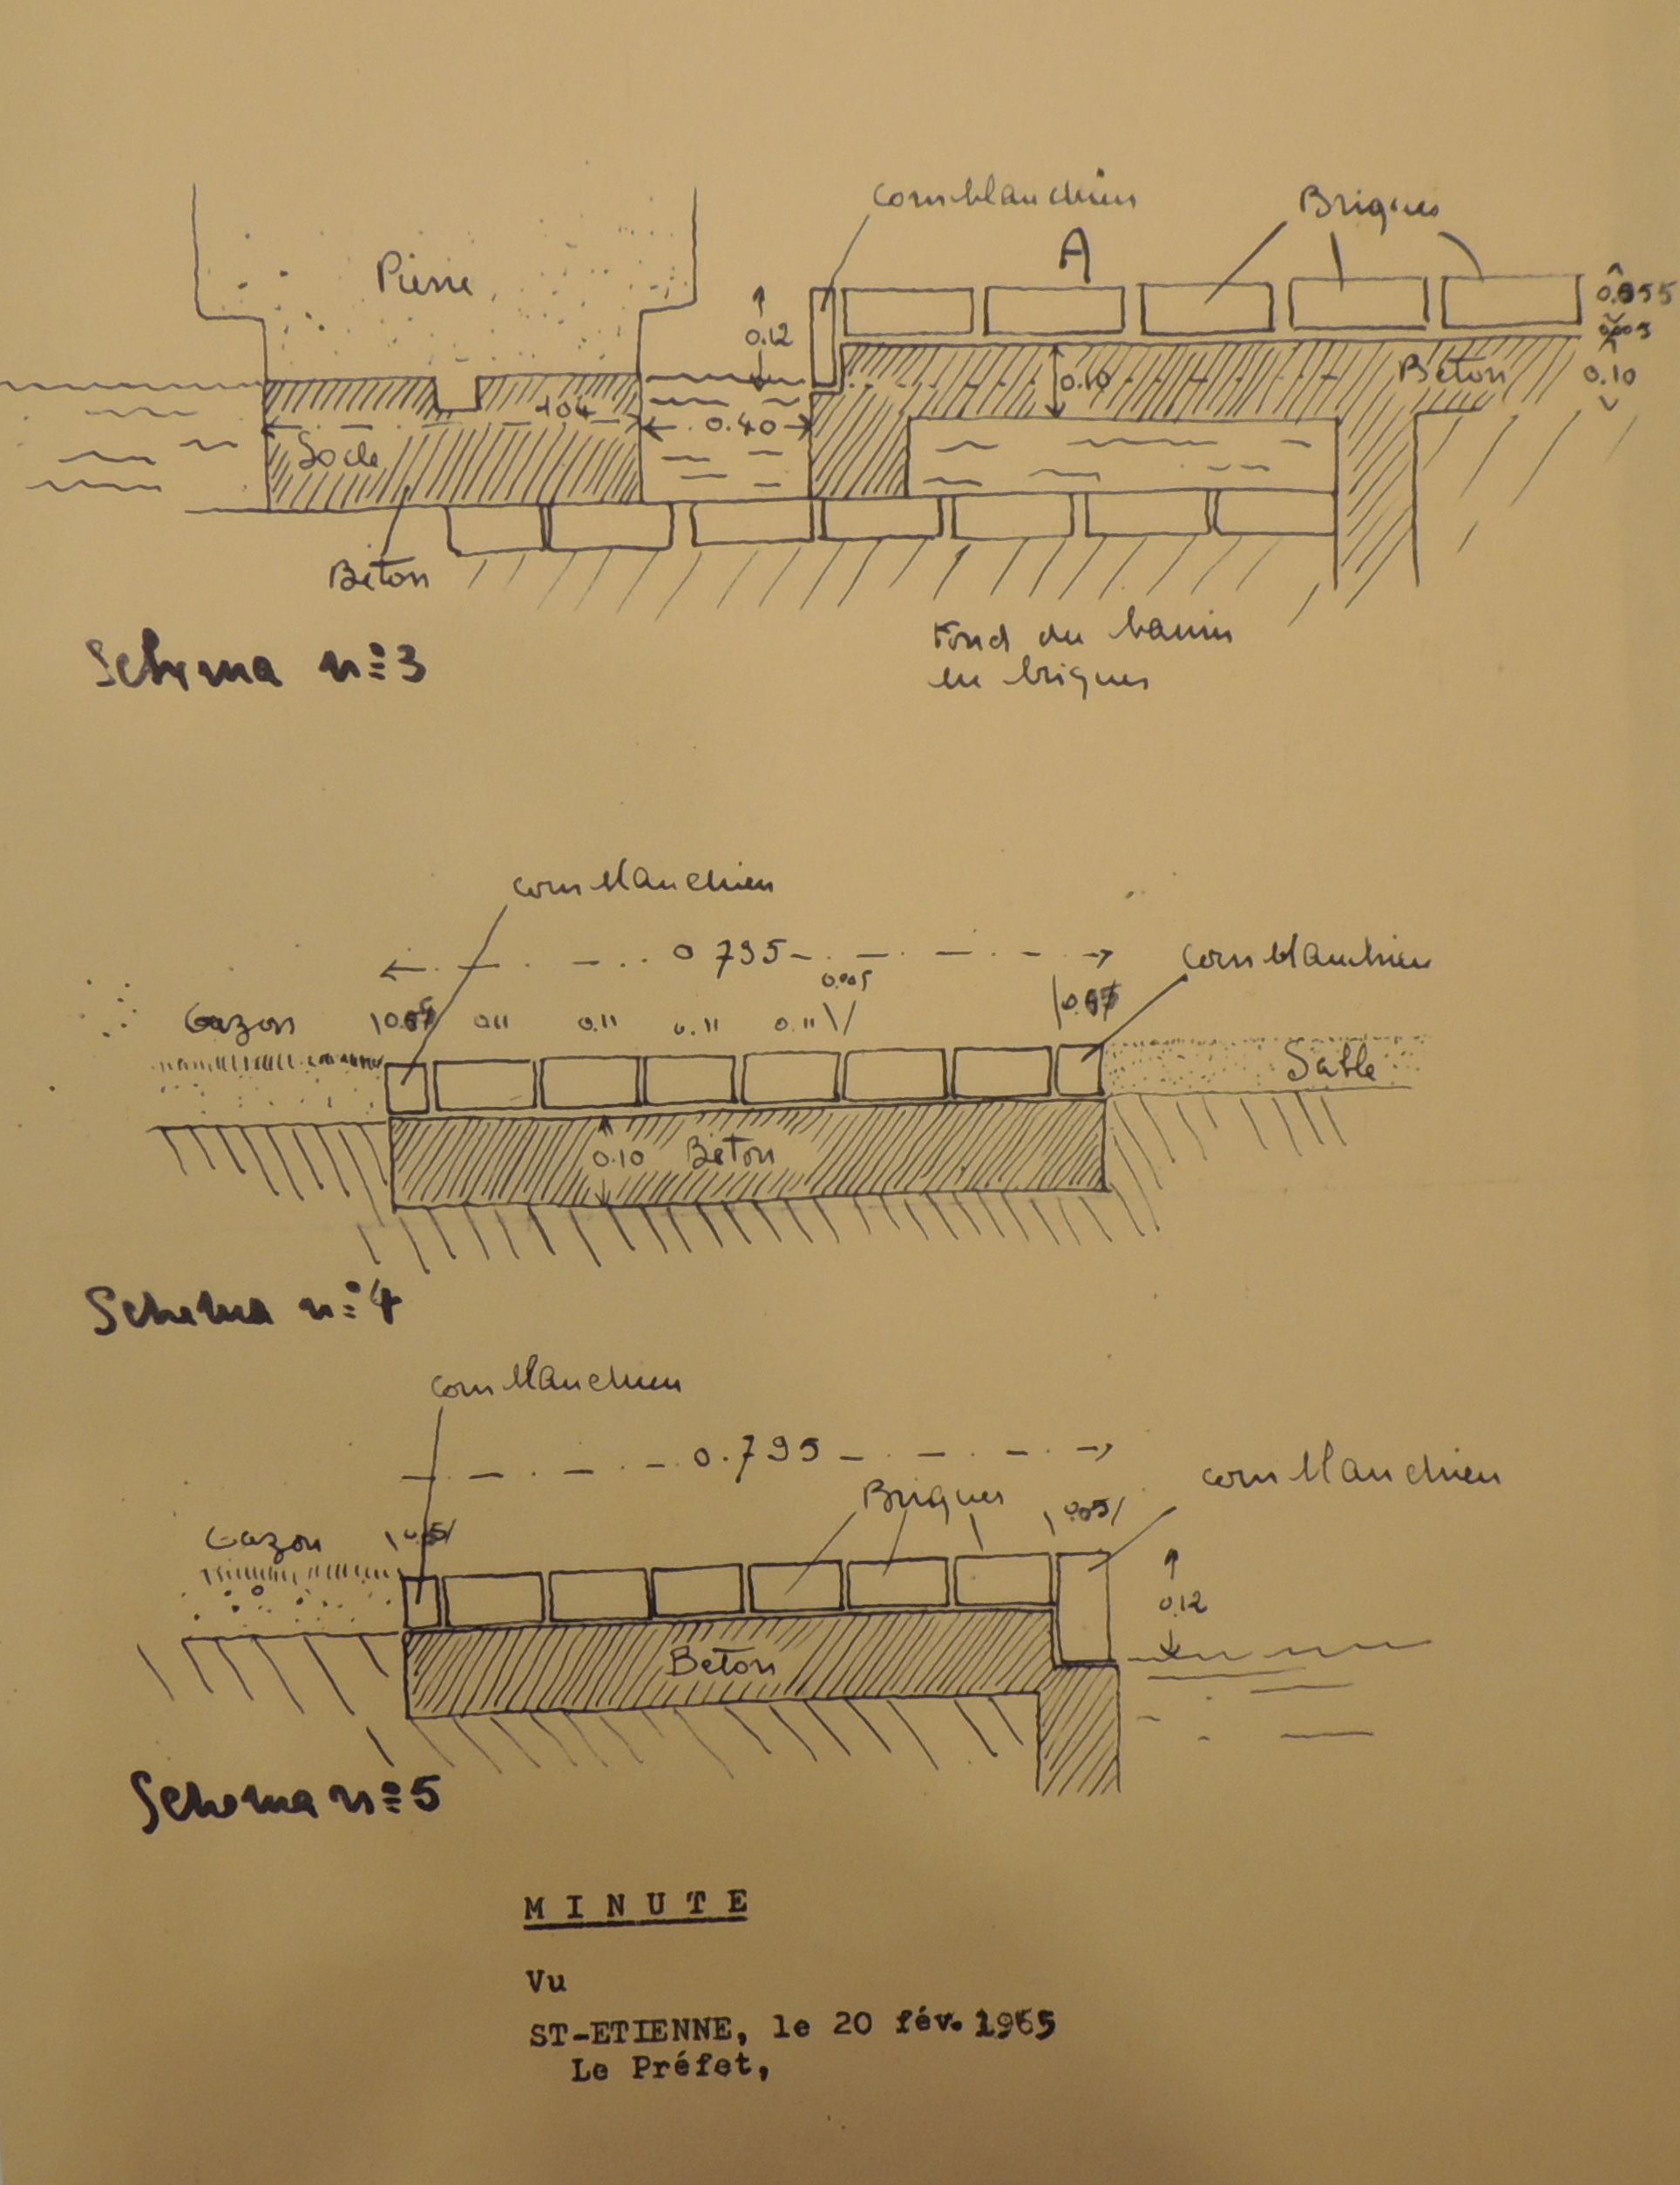 Comblanchien
A
Briques
Pierre
0.12
0.055
0.005
0.10
0.10
Béton
104
0.40
Socle
Béton
Fond du bassin
en briques
Schema n° 3
comblanchien
0 795
0.005
comblanchien
Gazon
0.11
0.11
0.11
0.11
Sable
0.10
Béton
Schema n° 4
comblanchien
0.795
Briques
comblanchien
0.05
Gazon
0.05
0.12
Beton
Schema n° 5
MINUTE
Vu
ST-ETIENNE, le 20 fév. 1965
Le Préfet,